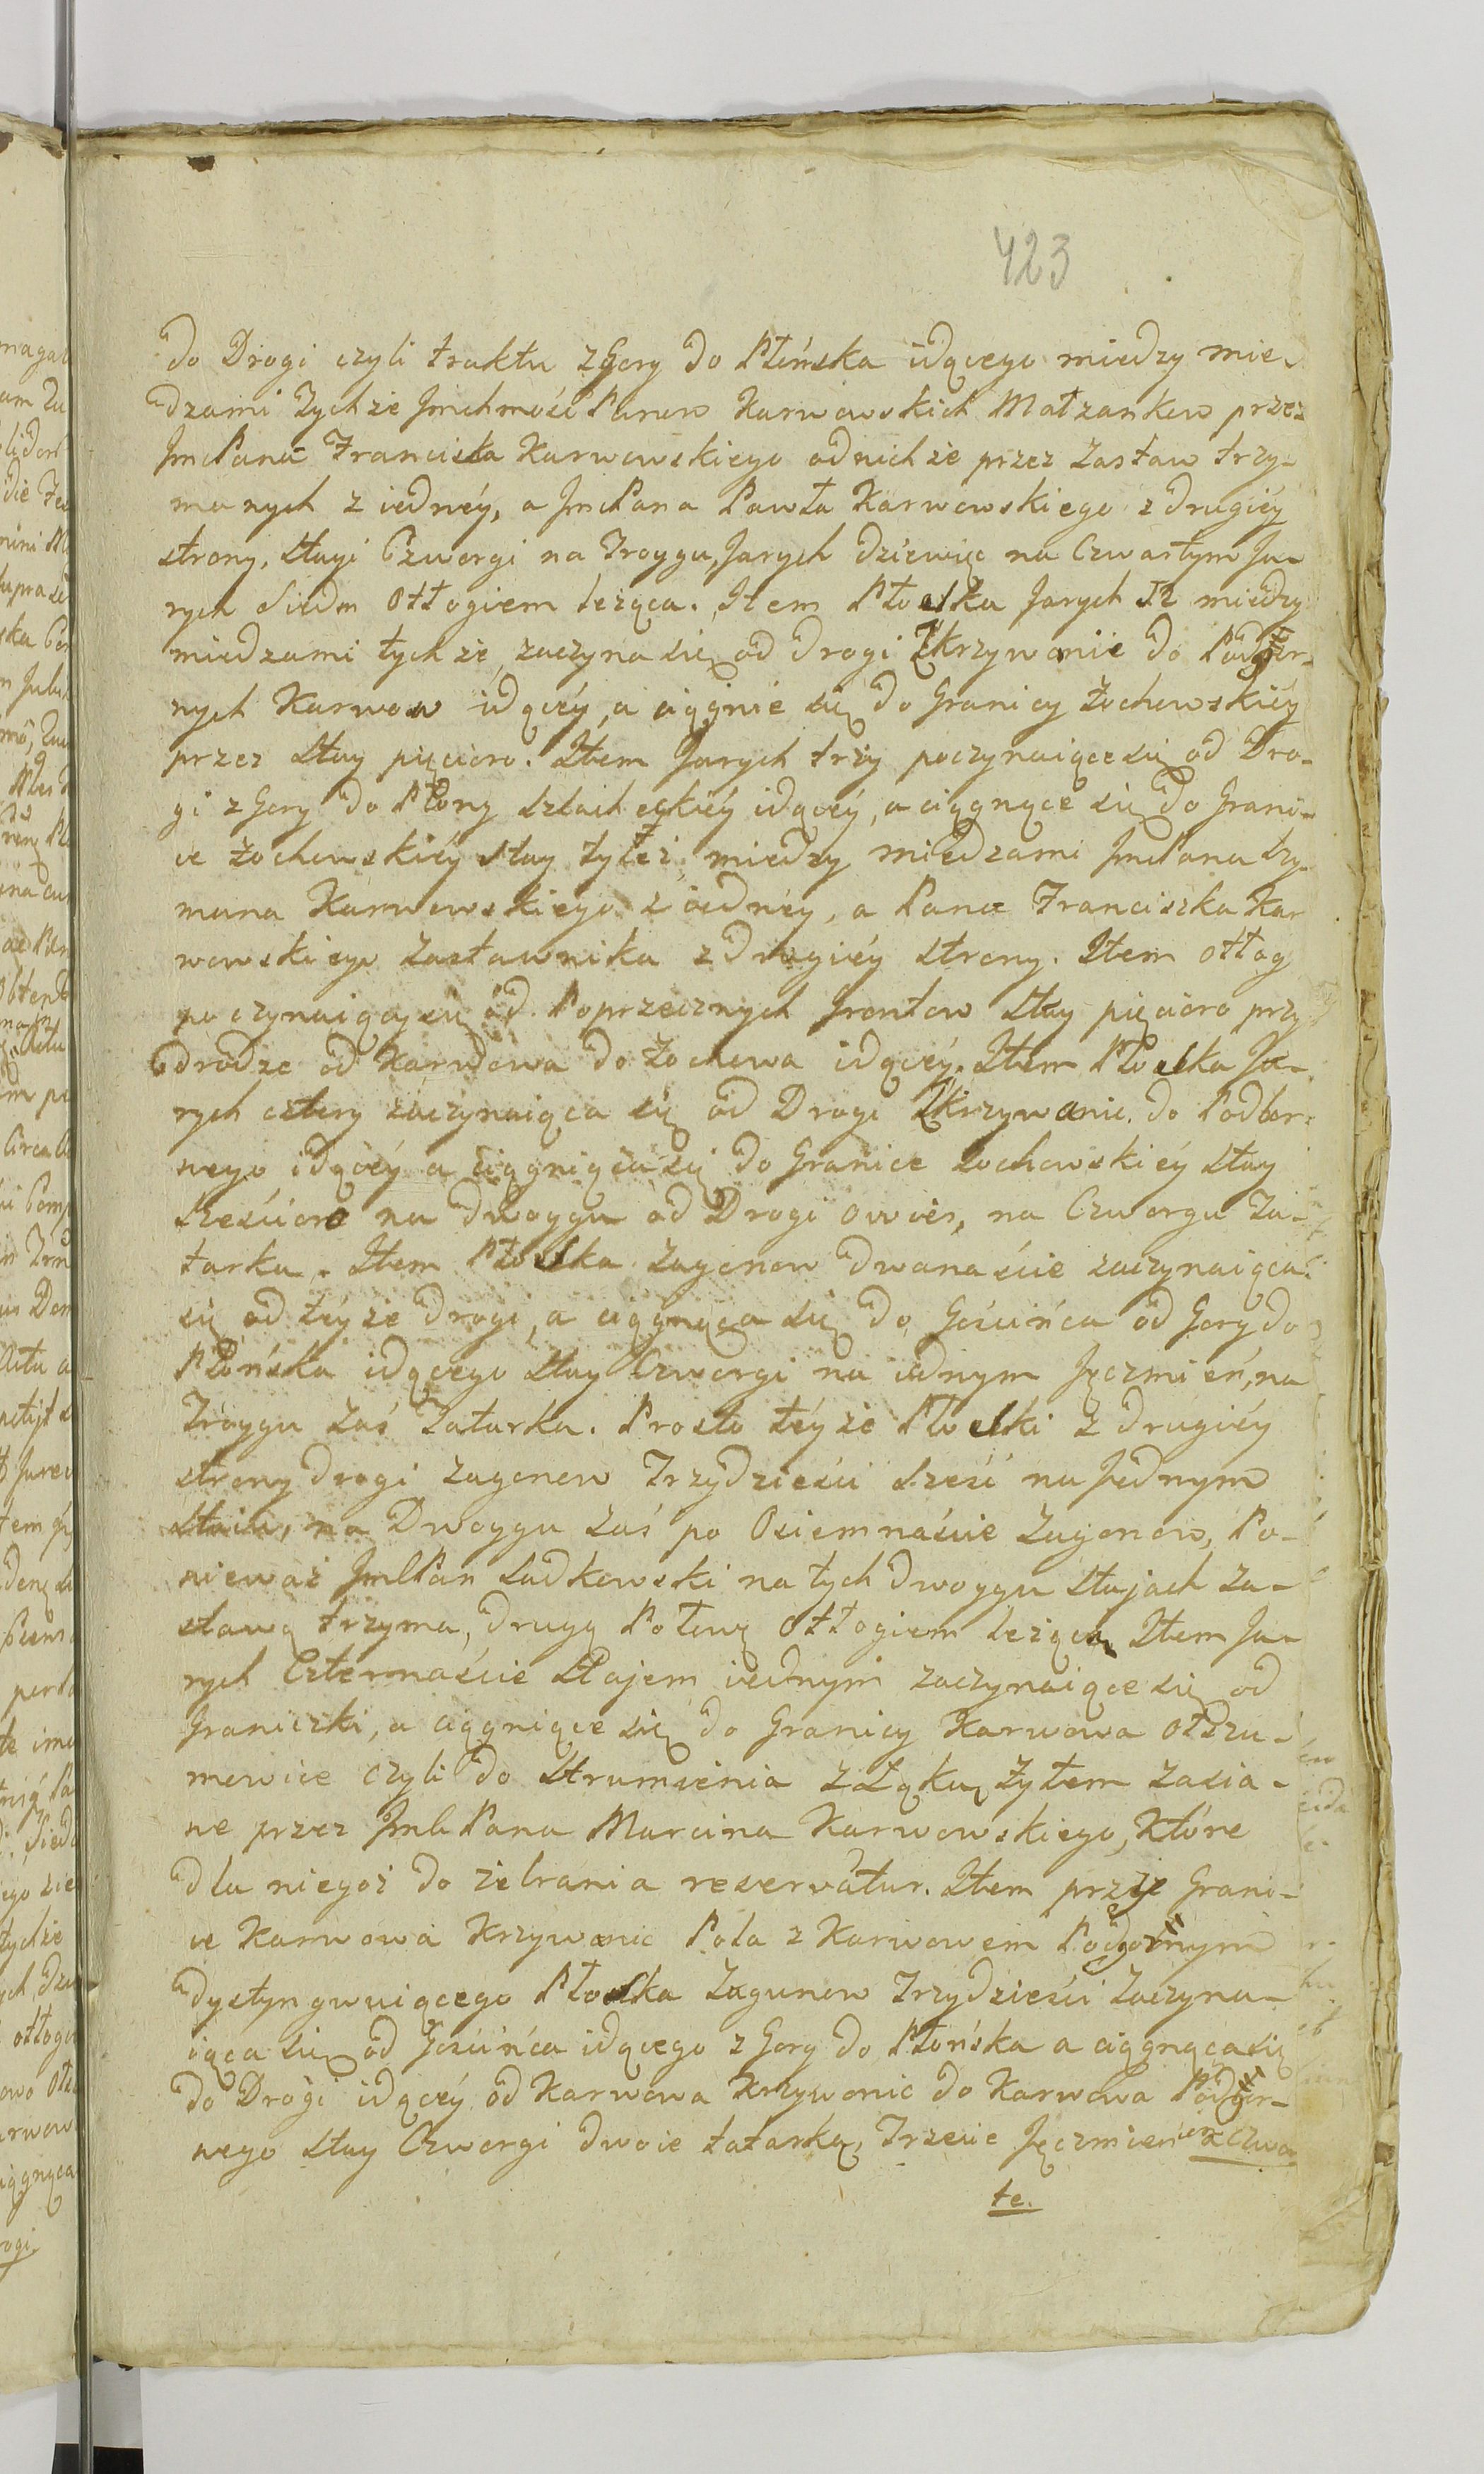 423
do Drogi czyli traktu z Gory do Płońska idącego miedzy mie-
dzami Tychże Jmchmość Panow Karwowskich Małzankow przez
JmcPana Franciska Karwowskiego od nichże przez Zastaw trzy-
manych z iednéy, a JmcPana Pawła Karwowskiego z drugiéy
strony, Stayi Czworgi na Troygu, Jarych dziewięc na Czwartym Ja-
rych Siedm Ottogiem leżąca. Item Płoska Jarych miedzy
miedzami tychże, zaczyna się od drogi Zkrzywanie do Podgor-
nych Karwow idącéy, a ciągnie się do Granicy Żochowskiéy
przez Stay pięcioro. Item Jarych trzy poczynaiące się od Dro-
gi z Gory do Płony szlacheckiéy idącéy, a ciągnące się do Grani-
ce Żochowskiéy stay tyleż, miedzy miedzami JmcPana Szy-
mana Karwowskiego z iednéy, a Pana Franciszka Kar
wowskiego zastawnika z drugiéy strony. Item ottog
poczynaiący się od Poprzecznych Grontow Stay pięcioro przy
drodze od Karwowa do Żochowa idącéy. Item Płoska Ja-
rych cztery zaczynaiąca się od Drogi Zkrzywanie do Podbor-
nego idącéy a ciągniąca się do Granice Zochowskiéy Stay
sześcioro na dwoygu od Drogi owies, na Czworgu Ta-
tarka. Item Płoska Zagonow dwanaście zaczynaiąca
się od téyże drogi, a ciągnąca się do Gościńca od Gory do
Płońska idącego Stay Czworgi na iednym Jęczmień, na
Troygu zaś Tatarka. Prosto téyże Płoski z drugiéy
strony drogi zagonow Trzydzieści sześć na Jednym
Staiu, na Dwoygu zaś po Osiemnaście Zagonow, Po-
niewaz JmlPan Sadkowski na tych dwoygu Stajach Za-
stawą trzyma, drugą Połową Ottogiem leżącą. Item Ja-
rych Czternaście Stajem iednym zaczynaiące się od
Graniczki, a ciągniące się do Granicy Karwowa Otszu-
mowice czyli do Strumienia z Łąką, żytem zasia-
ne przez JmlPana Marcina Karwowskiego, Które
dla niegoż do zebrania reservatur. Item przy Grani-
ce Karwowa Krzywanic Pola z Karwowem Podgornym
dystyngwuiącego Płoska Zagonow Trzydzieści Zaczyna-
iąca się od Gościńca idącego z Gory do Płońska a ciągnąca się
do Drogi idącéy od Karwowa Krzywonic do Karwowa Podgor-
nego Stay Czworgi dwoie tatarką, Trzecie Jęczmień Czwar
te.